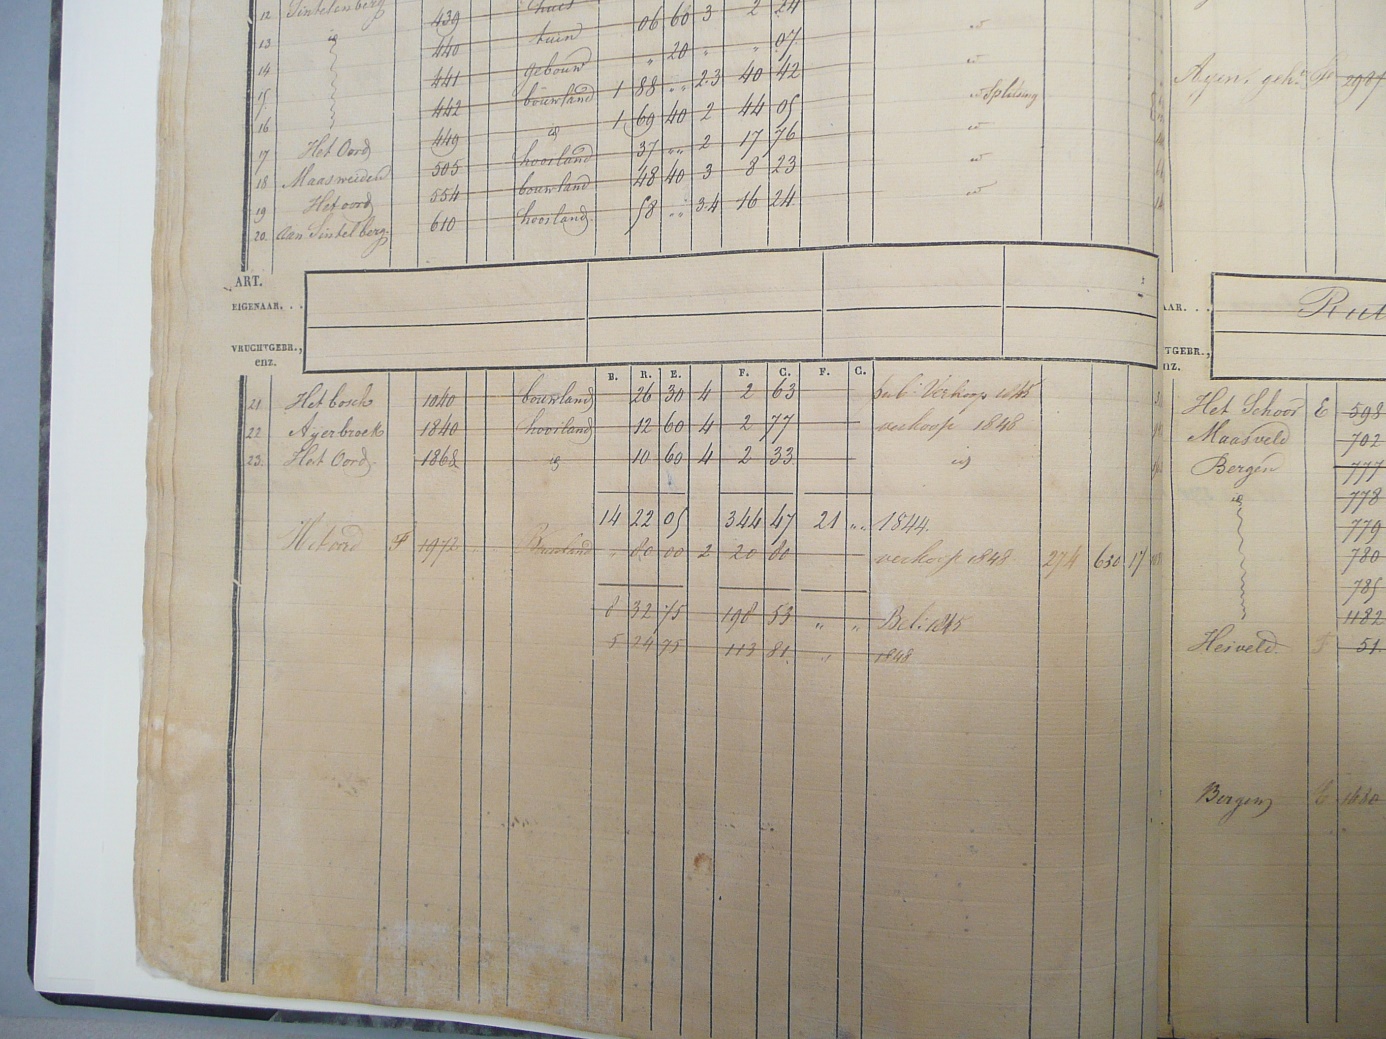 12 Sintelenberg 439 huis 06 60 3 2 24
13 id 440 tuin " 20 " " 07 id
14 441 gebouw 1 88 " " 2.3 40 42 id
15 442 bouwland 1 69 40 2 44 05 id Splitsing
16 449 id 37 " " 2 17 76 id
17 Het Oord 505 hooiland 48 40 3 8 23 id
18 Maasweiden 554 bouwland 58 " " 3.4 16 24 id
19 Het oord 610 hooiland
20 aan Sintelberg
ART.
EIGENAAR. . .
VRUCHTGEBR.,
enz.
B. R. E. F. C. F. C.
21 Het bosch 1040 bouwland 26 30 4 2 63 pub: Verkoop 1845
22 Ayerbroek 1840 hooiland 12 60 4 2 77 verkoop 1848
23. Het Oord 1868 id 10 60 4 2 33 id
14 22 05 344 47 21 " " 1844
Het oord F 1972 Bouwland " 80 00 2 20 80 verkoop 1848 274 630 17
8 32 75 198 53 " " Bel: 1845
5 24 75 113 81 " 1848
Agen. geh. F 2997
AAR. . . Rut
TGEBR.,
nz.
Het Schoor E 598
Maasveld 702
Bergen 777
id 778
779
780
785
1182
Heiveld F 51
Bergen E 1680